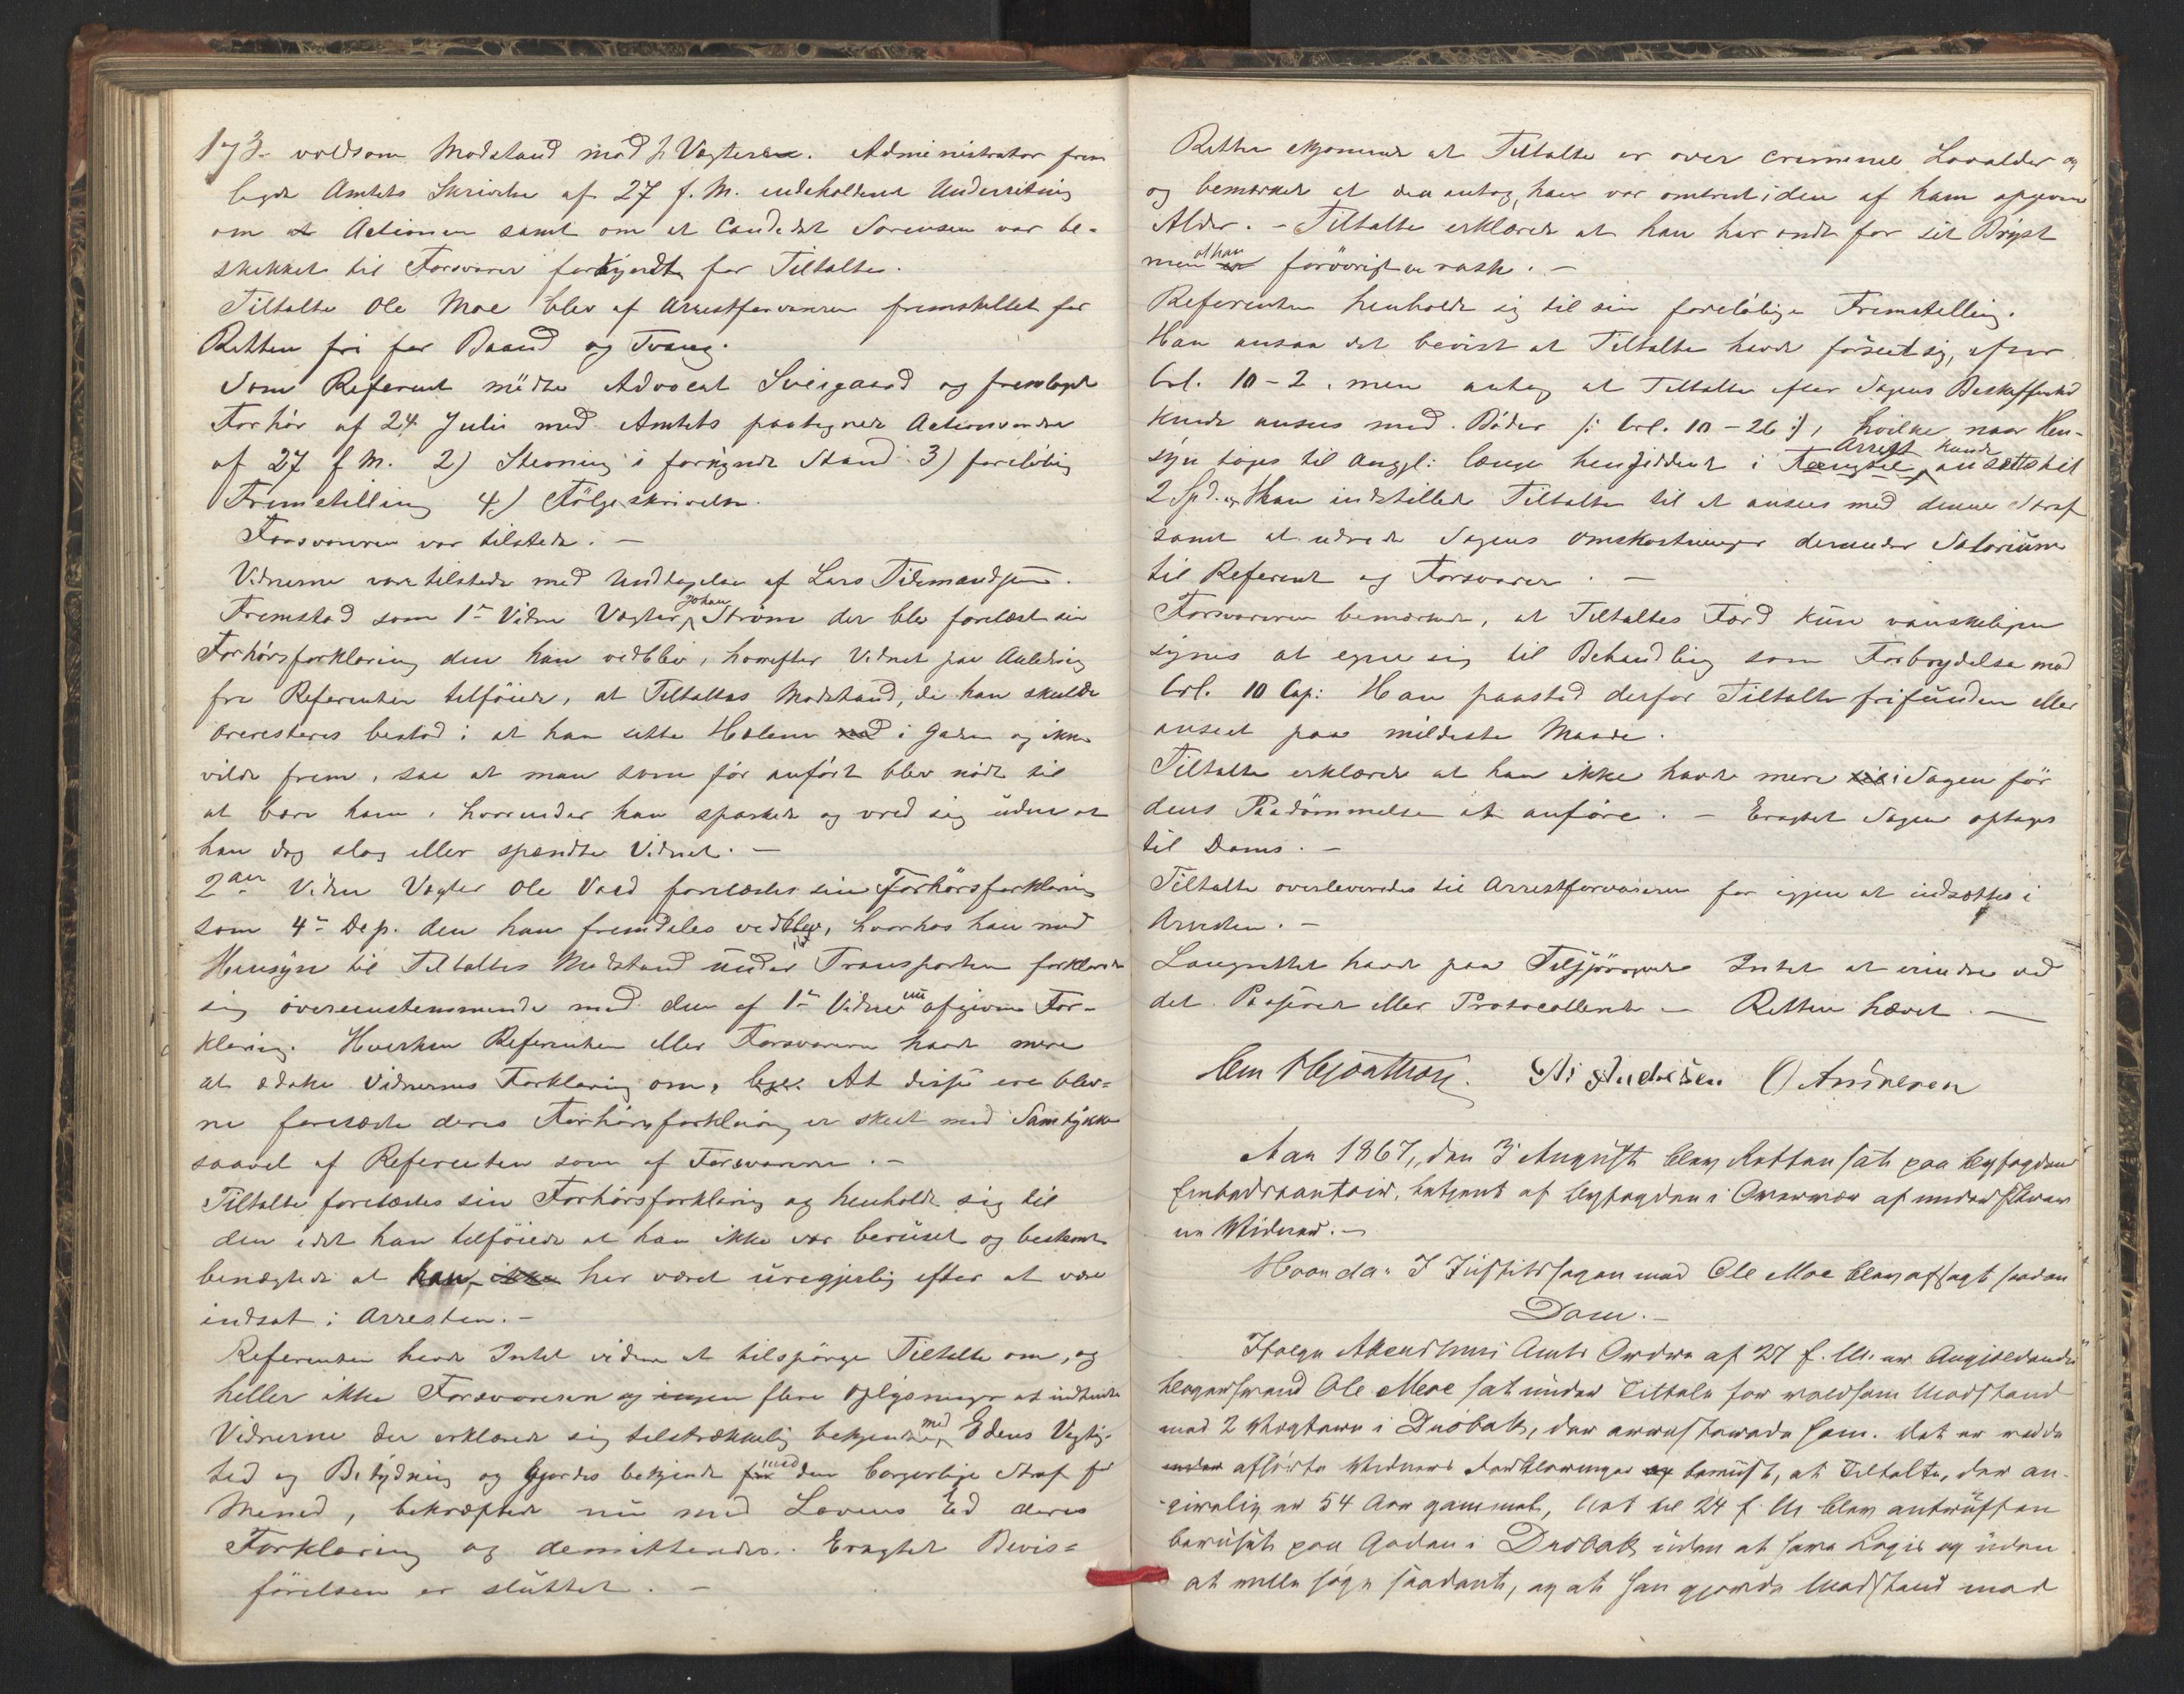 173. voldsom Modstand mod 2 Vægtere. Administrator frem
lagde Amtets Skrivelse af 27 f. M. indeholdende Underretning
om at Actionen samt om at Candidat Sørensen var be-
skikket til Forsvarer forkyndt for Tiltalte.
Tiltalte Ole Moe blev af Arrestforvareren fremstillet for
Retten fri for Baand og Tvang.
Som Referent mødte Advocat Sveigaard og fremlagde
Forhør af 24 Juli med Amtets paategnede Actionsordre
af 27 f M. 2) Stevning i forkyndt Stand 3) foreløbig
Fremstilling 4) Følgeskrivelse.
Forsvareren var tilstede. –
Vidnerne vare tilstede med Undtagelse af Lars Tidemandsen.
Fremstod som 1ste Vidne Vægter Johan Strøm der blev forelæst sin
Forhørsforklaring den han vedblev, hvorefter Vidnet paa Anledning
fra Referenten tilføiede, at Tiltaltes Modstand, da han skulde
arresteres bestod i at han satte Hælene ned i Gaden og ikke
vilde frem, saa at man som før anført blev nødt til
at bære ham, hvorunder han sparkede og vred sig uden at
han dog slog eller spændte Vidnet. –
2det Vidne Vægter Ole Vaed forelæstes sin Forhørsforklaring
som 4de Dep. den han fremdeles vedblev, hvorhos han med
Hensyn til Tiltaltes Modstand under Transporten forklarede
sig overeensstemmende med den af 1ste Vidne nu afgivne For-
klaring. Hverken Referenten eller Forsvareren havde mere
at æske Vidnernes Forklaring om. At disse ere blev-
ne forelæste deres Forhørsforklaring er skeet med Samtykke
saavel af Referenten som af Forsvareren. –
Tiltalte forelæstes sin Forhørsforklaring og henholdt sig til
den idet han tilføiede at han ikke var beruset og bestemt
benægtede at han ikke har været uregjerlig efter at være
indsat i Arresten. –
Referenten havde Intet videre at tilspørge Tiltalte om, og
heller ikke Forsvareren og ingen flere Oplysninger at indhente
Vidnerne der erklærede sig tilstrækkelig bekjendte med Edens Vigtig-
hed og Betydning og gjordes bekjendt med den borgerlige Straf for
Mened, bekræftede nu med Lovens Ed deres
Forklaring og demitteredes. Eragtet Bevis-
førelsen er sluttet. –
Retten skjønnede at Tiltalte er over criminel Lavalder og
og bemærkede at den antog, han var omtrent i den af ham opgivne
Alder. – Tiltalte erklærede at han har ondt for sit Bryst
men at han forøvrigt er rask. –
Referenten henholdt sig til sin foreløbige Fremstilling.
Han ansaa det bevist at Tiltalte havde forseet sig, efter
Crl. 10 – 2, men antog at Tiltalte efter Sagens Beskaffenhed
kunde ansees med Bøder /: Crl. 10 – 26 :/, hvilke naar Hen-
syn toges til Angjl: længe hensiddende i Fængsel Arrest kunde ansættes til
2 Spd. og Han indstillede Tiltalte til at ansees med denne Straf
samt at udrede Sagens Omskostninger derunder Salarium
til Referent og Forsvarer. –
Forsvareren bemærkede, at Tiltaltes Færd kun vanskeligen
synes at egne sig til Behandling som Forbrydelse mod
Crl. 10 Cap: Han paastod derfor Tiltalte frifunden eller
anseet paa mildeste Maade.
Tiltalte erklærede at han ikke havde mere i Sagen før
dens Paadømmelse at anføre. – Eragtet Sagen optages
til Doms. –
Tiltalte overleveredes til Arrestforvareren for igjen at indsættes i
Arresten. –
Laugrettet havde paa Tilspørgende Intet at erindre ved
det Passerede eller Protocollerede – Retten hævet. –
O Andresen
Aar 1867, den 3 August blev Retten sat paa Byfogdens
Embedscontoir, betjent af Byfogden i Overvær af underskrevne
to Vidner. –
Hvorda: I Justitssagen mod Ole Moe blev afsagt saadan
Dom. –
Ifølge Akershuus Amts Ordre af 27 f. M. er Angjeldende
Ole Moe sat under Tiltale for voldsom Modstand
mod 2 Vægtere i Drøbak, der arresterede ham. Det er ved de
afhørte Vidners Forklaringer beviist, at Tiltalte, der an-
givelig er 54 Aar gammel, Nat til 24 f. M blev antruffen
beruset paa Gaden i Drøbak uden at have Logis og uden
at ville søge saadant, og at han gjorde Modstand mod